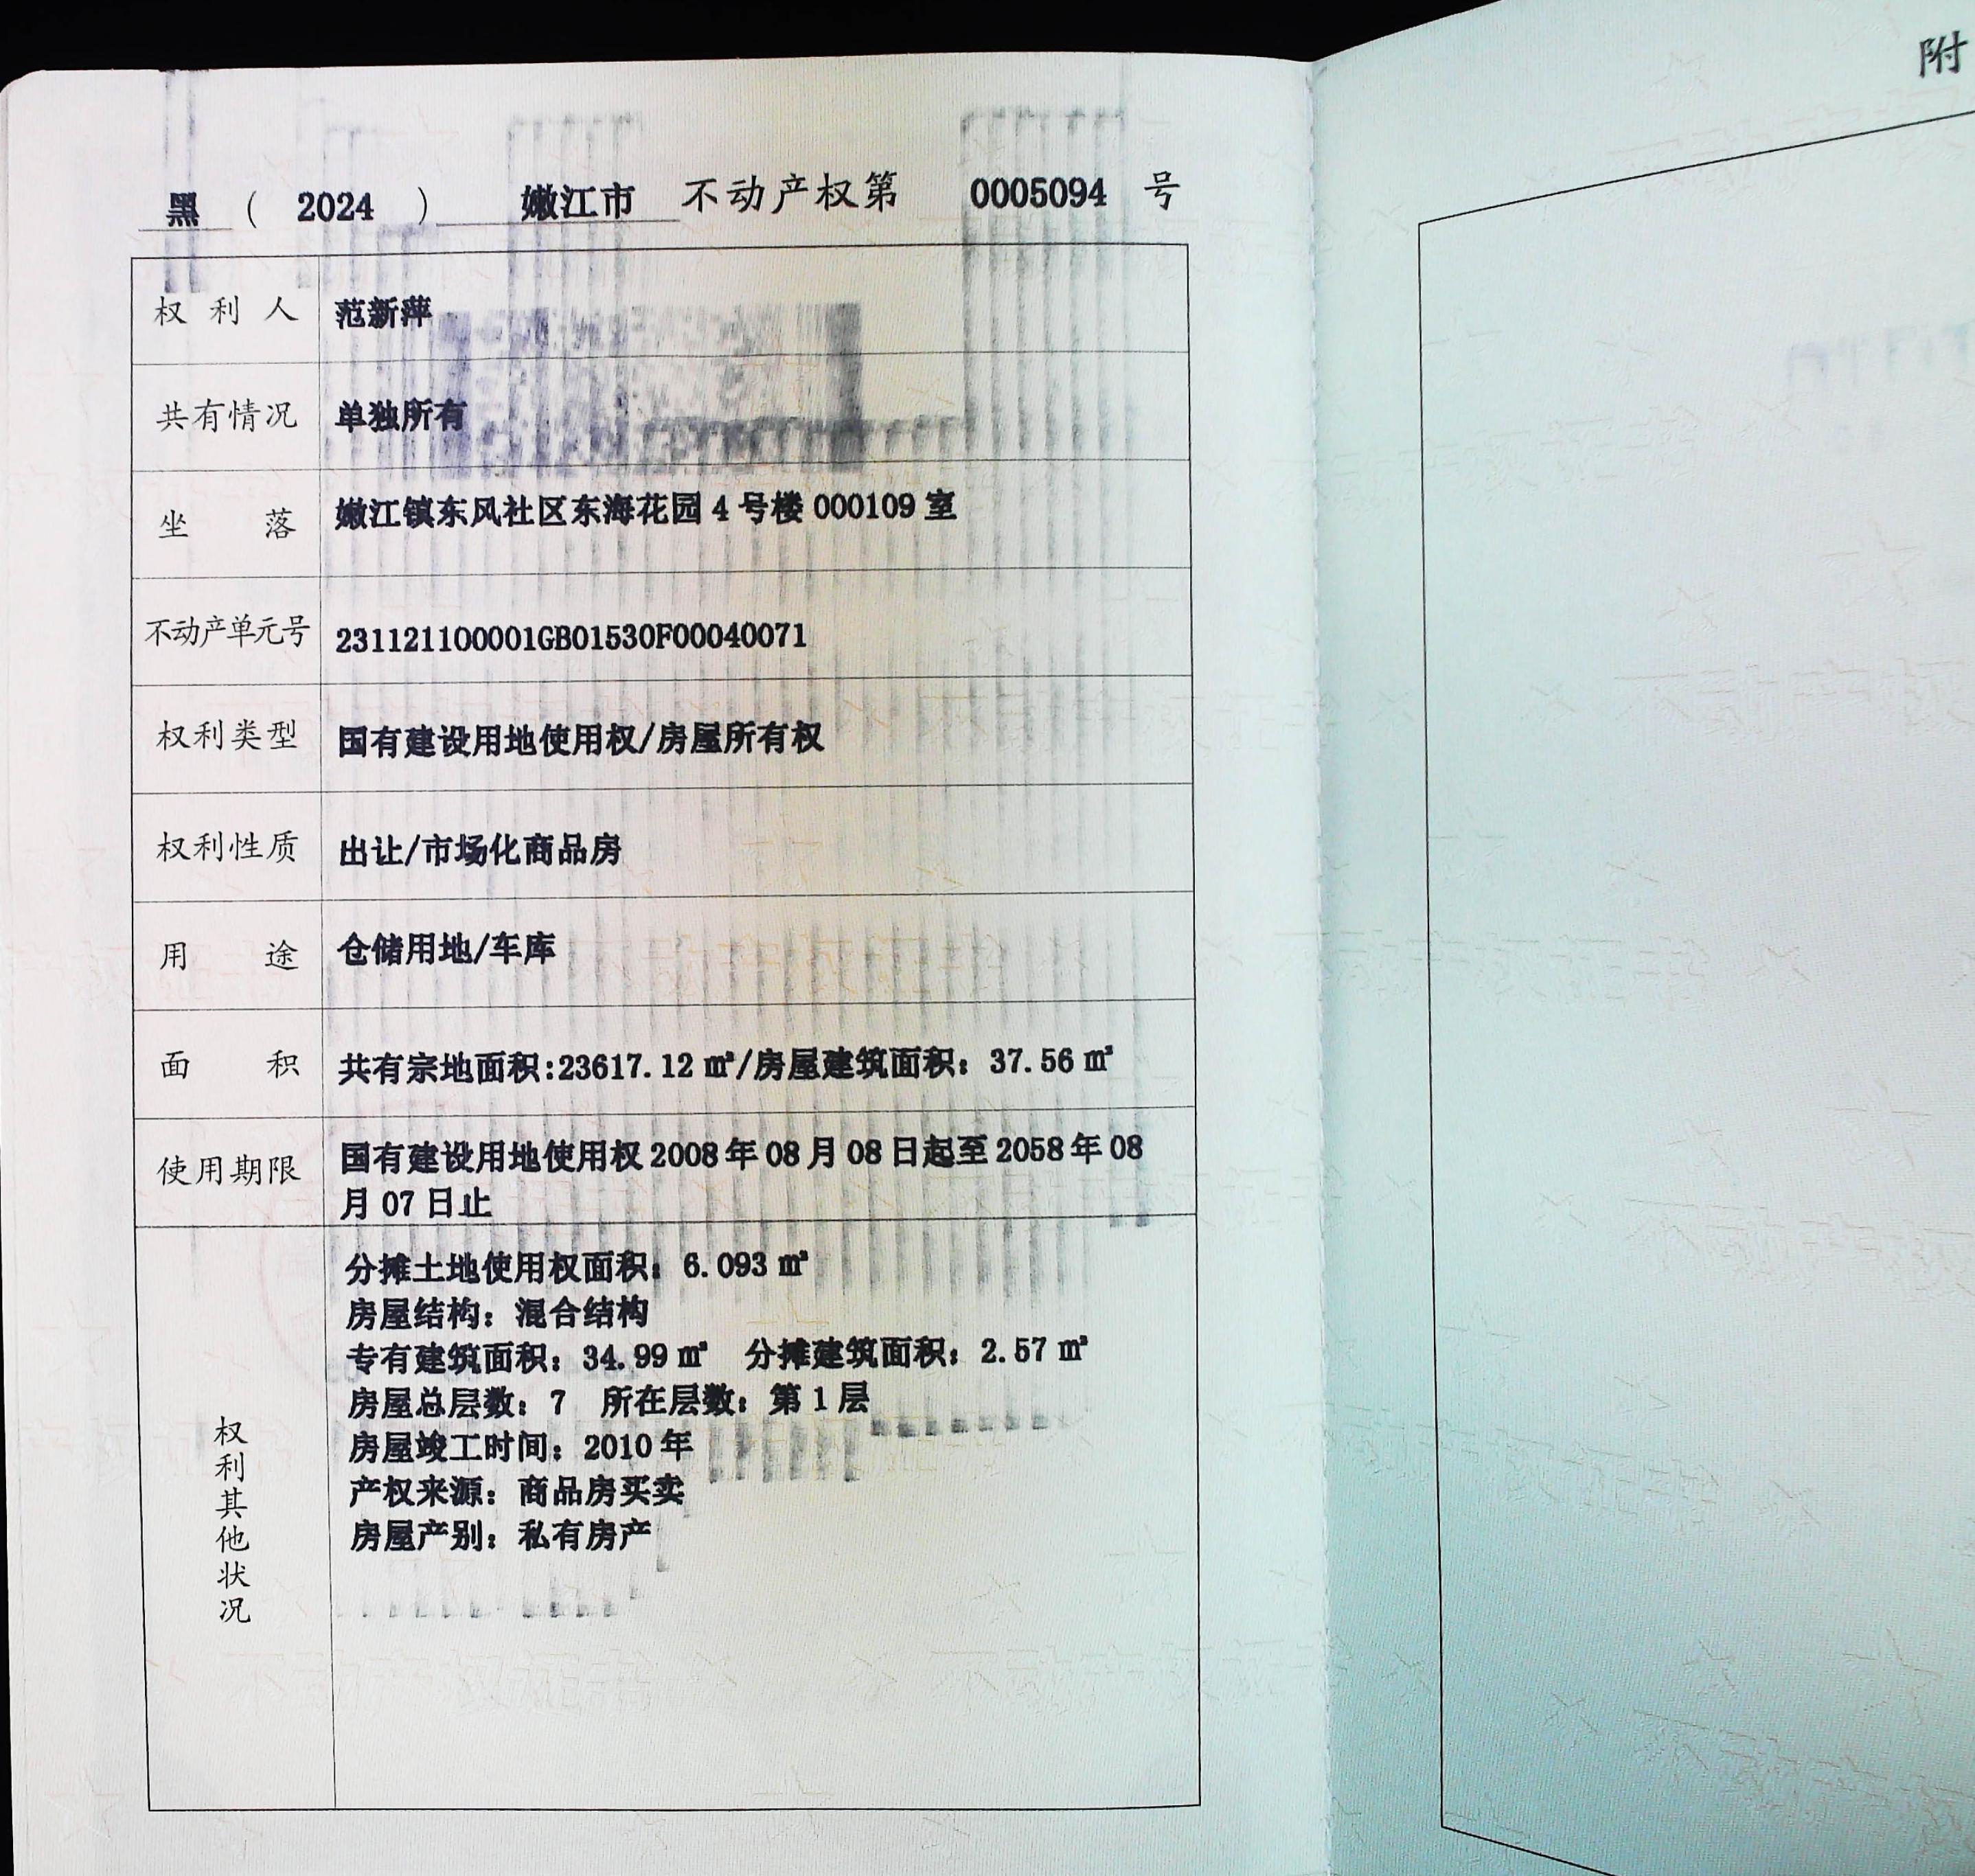 黑 ( 2024 ) 嫩江市 不动产权第 0005094 号
权利人 范新萍
共有情况 单独所有
坐落 嫩江镇东风社区东海花园 4 号楼 000109 室
不动产单元号 231121100001GB01530F00040071
权利类型 国有建设用地使用权/房屋所有权
权利性质 出让/市场化商品房
用途 仓储用地/车库
面积 共有宗地面积:23617.12 ㎡/房屋建筑面积：37.56 ㎡
使用期限 国有建设用地使用权 2008 年 08 月 08 日起至 2058 年 08
月 07 日止
权利其他状况
分摊土地使用权面积：6.093 ㎡
房屋结构：混合结构
专有建筑面积：34.99 ㎡ 分摊建筑面积：2.57 ㎡
房屋总层数：7 所在层数：第 1 层
房屋竣工时间：2010 年
产权来源：商品房买卖
房屋产别：私有房产
附